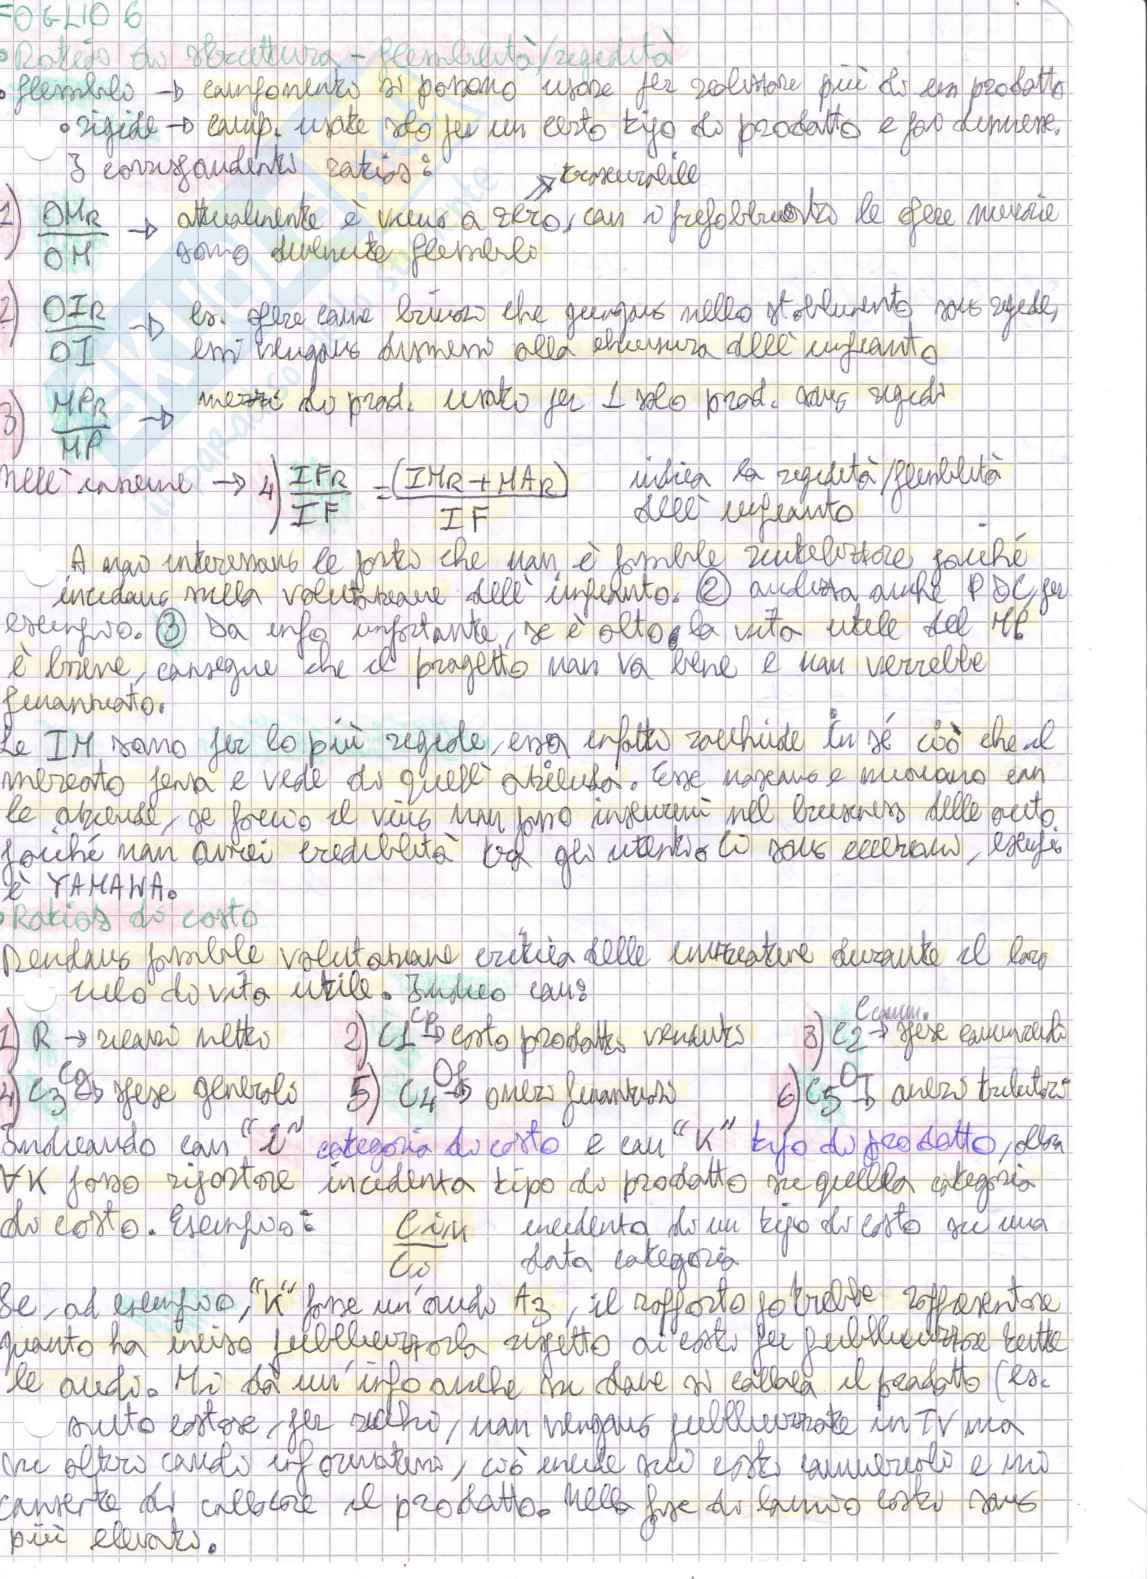 FOGLIO 6
• Ratios di struttura - flessibilità/rigidità
• flessibili → componenti si possono usare per realizzare più di un prodotto
• rigide → comp. usate solo per un certo tipo di prodotto e poi dismesse.
3 corrispondenti ratios:
trascurabile
1) OMR/OM → attualmente è vicino a zero, con i prefabbricati le opere murarie
sono divenute flessibili
2) OIR/OI → es. opere come binari che giungono nello stabilimento sono rigide,
essi vengono dismessi alla chiusura dell'impianto
3) MPR/MP → mezzi di prod. usato per 1 solo prod. sono rigidi
Nell'insieme → 4) IFR/IF = (IMR+MAR)/IF indica la rigidità/flessibilità
dell'impianto
A noi interessano le parti che non è possibile riutilizzare poiché
incidono nella valutazione dell'impianto. ② analizza anche PDC, per
esempio. ③ Da info importante, se è alto, la vita utile del MP
è breve, consegue che il progetto non va bene e non verrebbe
finanziato.
Le IM sono per lo più rigide, essa infatti racchiude in sé ciò che il
mercato pensa e vede di quell'azienda. Esse nascono e muoiono con
le aziende, se faccio il vino non posso inserirmi nel business delle auto
poiché non avrei credibilità tra gli utenti. Ci sono eccezioni, esempio
è YAMAHA.
• Ratios di costo
Rendono possibile valutazione critica delle iniziative durante il loro
ciclo di vita utile. Indico con:
1) R → ricavi netti 2) C1 CP → costo prodotti venduti 3) C2 Comm. → spese commerciali
4) C3 CG → spese generali 5) C4 OF → oneri finanziari 6) C5 OT → oneri tributari
Indicando con "i" categoria di costo e con "K" tipo di prodotto, allora
∀K posso riportare incidenza tipo di prodotto su quella categoria
di costo. Esempio: CiK/Ci incidenza di un tipo di costo su una
data categoria
Se, ad esempio, "K" fosse un'audi A3, il rapporto potrebbe rappresentare
quanto ha inciso pubblicizzarla rispetto ai costi per pubblicizzare tutte
le audi. Mi dà un'info anche su dove si colloca il prodotto (es.
auto costose, per ricchi, non vengono pubblicizzate in TV ma
su altri canali informativi, ciò incide sui costi commerciali e mi
consente di collocare il prodotto. Nella fase di lancio costi sono
più elevati.